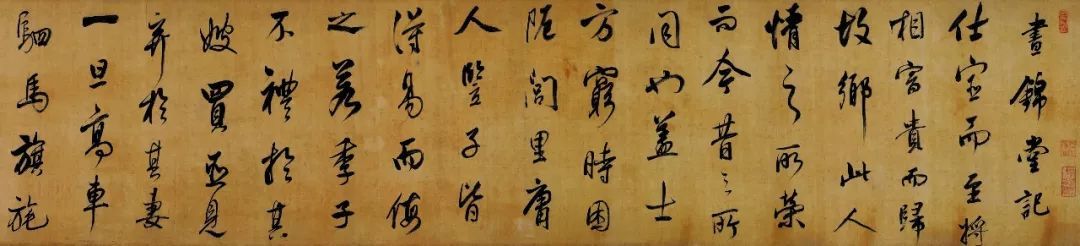 晝錦堂記
仕宦而至將
相富貴而歸
故鄉此人
情之所榮
而今昔之所
同也蓋士
方窮時困
阨閭里庸
人豎子皆
得易而侮
之若季子
不禮於其
嫂買臣見
棄於其妻
一旦高車
駟馬旗旄